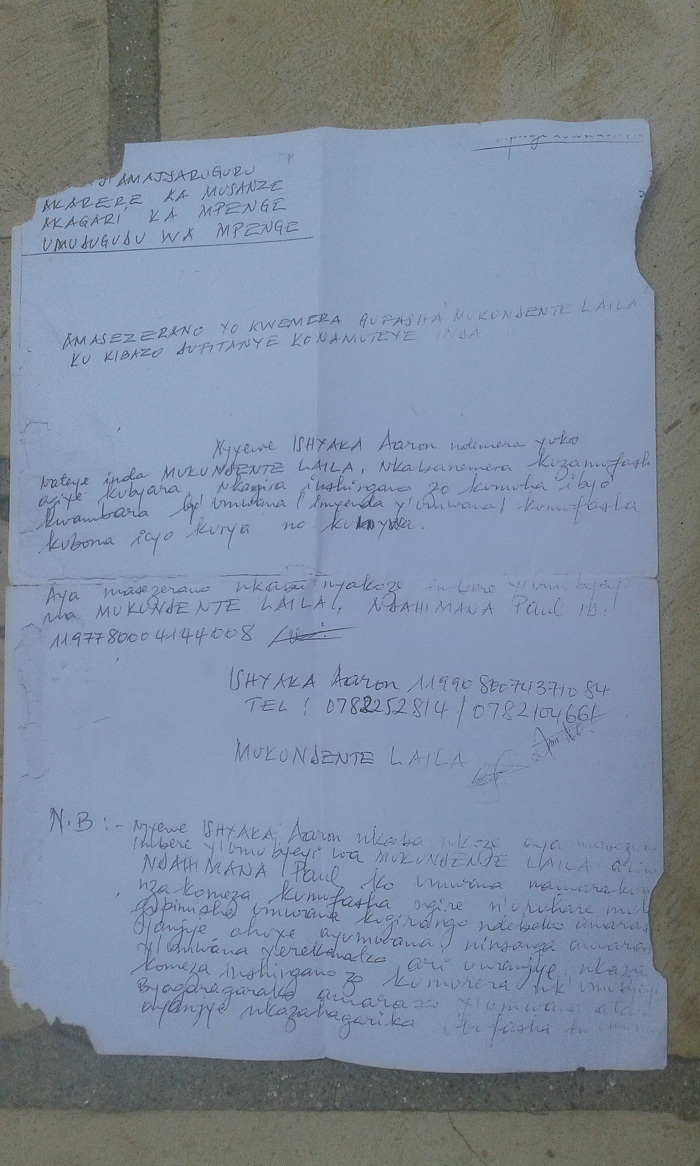 AMAJYARUGURU
AKARERE KA MUSANZE
AKAGARI KA MPENGE
UMUDUGUDU WA MPENGE
AMASEZERANO YO KWEMERA GUFASHA MUKUNDENTE LAILA
KU KIBAZO DUFITANYE KO NAMUTEYE INDA
Njyewe ISHYAKA Aaron ndemera yuko
Nateye inda MUKUNDENTE LAILA, Nkabanemera kuzamufash
agiye kubyara Nkagira inshingano zo kumuha ibyo
kwambara by'umwana (imyenda y'umwana) kumufasha
kubona icyo kurya no kunywa.
Aya masezerano nkaba nyakoze imbere y'umubyeyi
wa MUKUNDENTE LAILA, NDAHIMANA Paul ID:
1197780004144008
ISHYAKA Aaron 1199080074371084
TEL: 0782252814 / 0782104661
MUKUNDENTE LAILA
N.B:- Njyewe ISHYAKA Aaron nkaba nkoze aya
imbere y'umubyeyi wa MUKUNDENTE LAILA
NDAHIMANA Paul ko umwana
nzakomeza kumufasha ngire n'uruhare
gupimisha umwana kugirango ndebeko amaras
ayanjye ahuye ayumwana, ninsanga amaras
y'umwana yerekanako ari uwanjye, nkaza
komeza inshingano zo kumurera nk'umubye
Byagaragarako amaraso y'umwana atari
ayanjye nkazahagarika